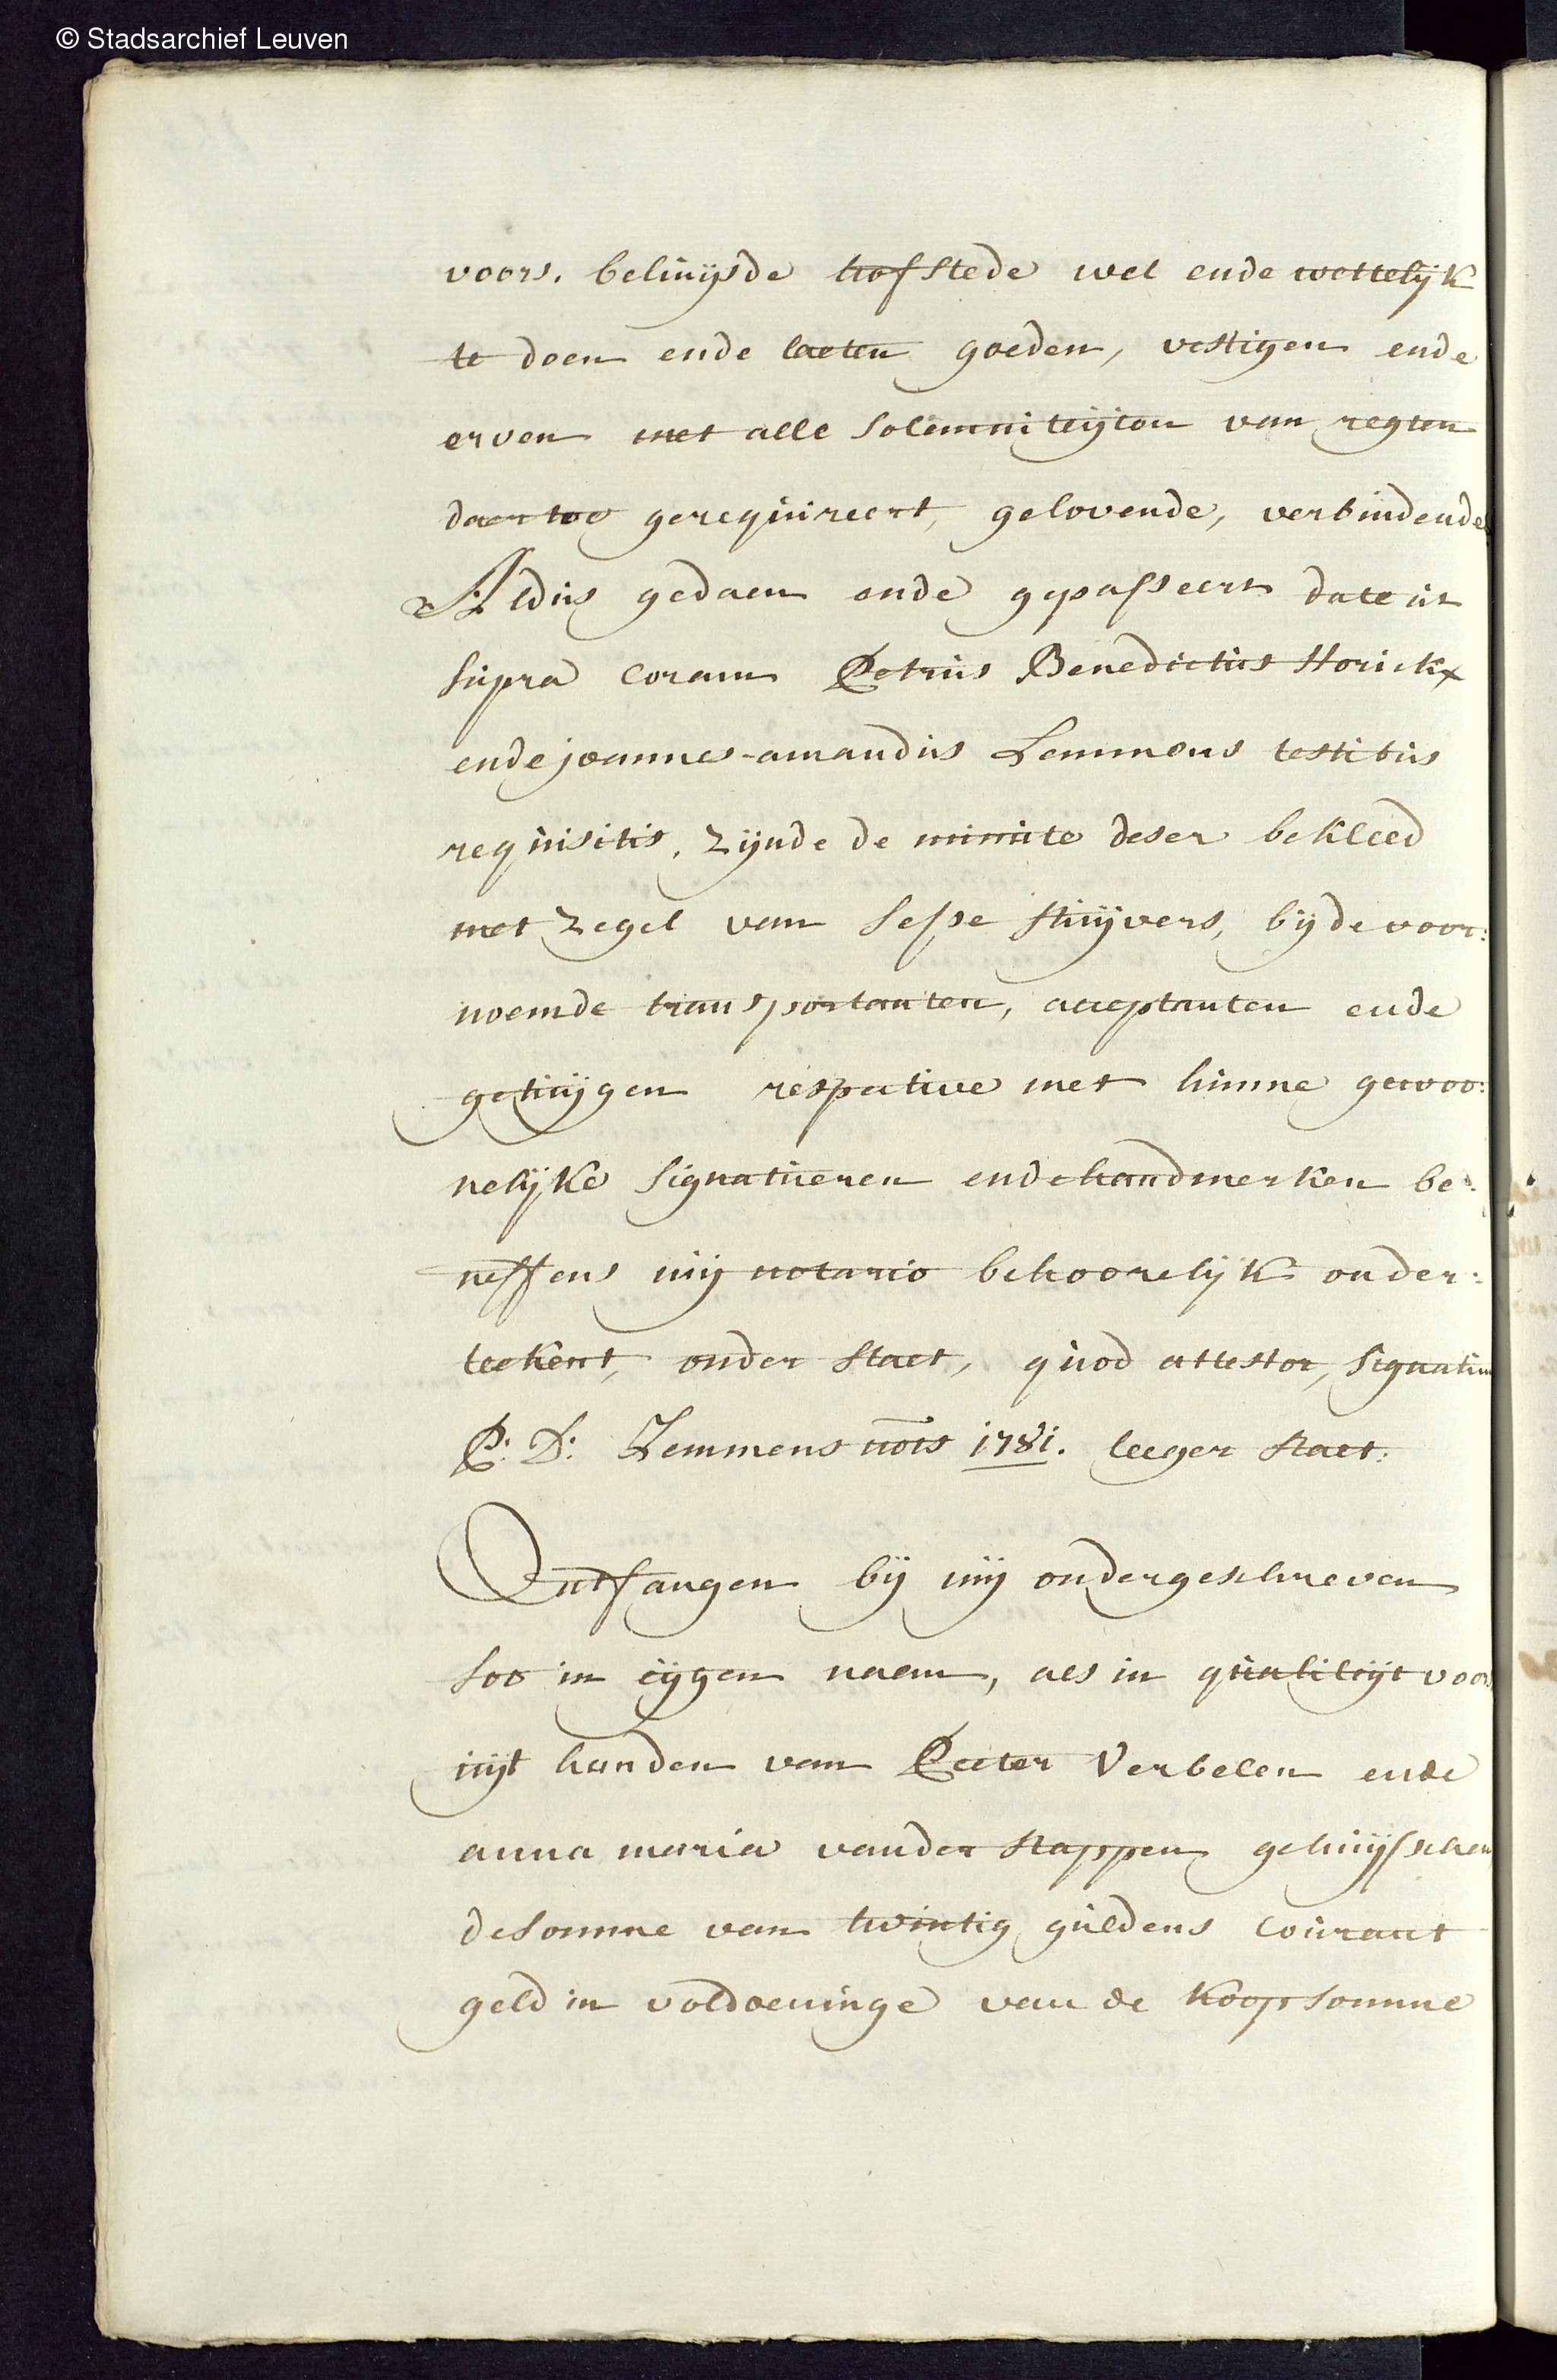 © Stadsarchief Leuven
voors. behuijsde hofstede wel ende wettelijk
te doen ende laeten goeden, vestigen ende
erven met alle solemniteijten van regten
daer toe gerequireert, gelovende, verbindende
Aldus gedaen ende gepasseert date ut
supra coram Petrus Benedictus Horickx
ende joannes-amandus Lemmens testibus
requisitis, zijnde de minute deser bekleed
met zegel van sesse stuijvers, bij de voor:
noemde transportanten, acceptanten ende
getuijgen respective met hunne gewoo:
nelijke signatueren ende handmerken be:
neffens mij notario behoorelijk onder:
teekent, onder staet, quod attestor, signatum
P: D: Lemmens nots 1781. leeger staet:
Ontfangen bij mij ondergeschreven
soo in eijgen naem, als in qualiteijt voors
uijt handen van Peeter Verbelen ende
anna maria vander stappen gehuijsschen
de somme van twintig guldens courant
geld in voldoeninge van de koopsomme